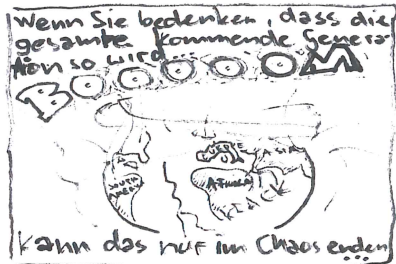 Wenn Sie bedenken, dass die
gesamte kommende Genera-
tion so wird...
BOOOOOM
EUROPE
ASIA
SOUTH
AMERI
AFRICA
KLACK
Kann das nur im Chaos enden
...